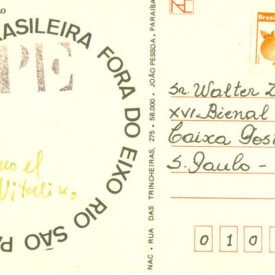 BRASILEIRA FORA DO EIXO RIO SÃO PA
PE
el
NAC - RUA DAS TRINCHEIRAS, 275 - 58.000 - JOÃO PESSOA, PARAÍBA
Brasil
Sr. Walter Z
XVI-Bienal
Caixa Post
S. Paulo -
0 1 0